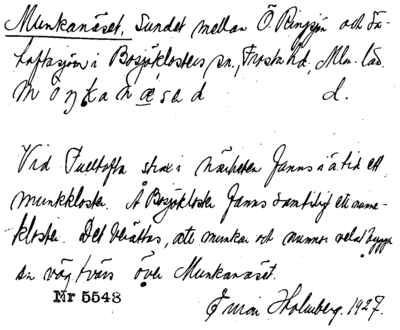 Munkanäset. Sundet mellan Ö. Ringsjön och Sä-
toftasjön i Bosjöklosters sn., Frosta hd., Mlm. län.
d.
Vid Fulltofta strax i närheten fanns i ä. tid ett
munkkloster. Å Bosjökloster fanns samtidigt ett nunne-
kloster. Det berättas, att munkar och nunnor velat bygga
en väg tvärs över Munkanäset.
Nr 5548
Holmberg. 1927.